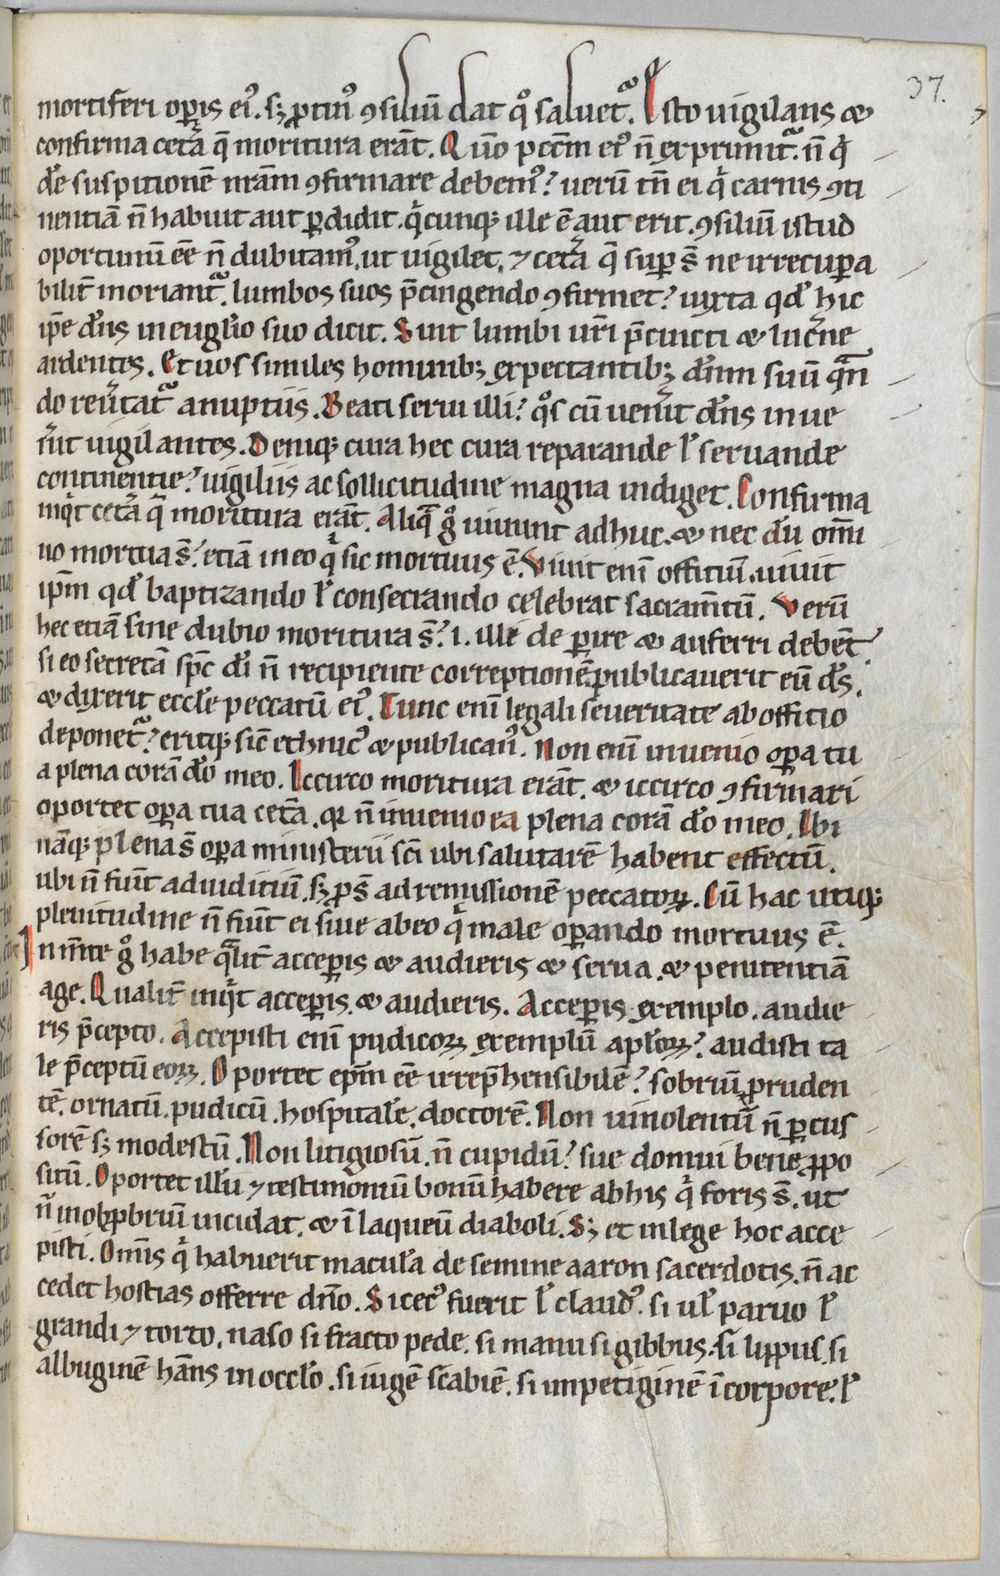 37.
mortiferi oꝑis eiꝰ. sꝫ ꝓtinꝰ ꝯsiliū dat qͦ saluetᷓ. Esto uigilans &
confirma cetᷓa q̄ moritura erāt. Quō pccm̄ eiꝰ n̄ exprimitᷓ. n̄ qͥ
de suspitionē nr̄am ꝯfirmare debemꝰ? uerū tn̄ ei qͥ carnis ꝯti
nentiā n̄ habuit aut ꝑdidit. qͥcunqꝫ ille ē aut erit. ꝯsiliū istud
oportunū ēē n̄ dubitamꝰ. ut uigilet. ⁊ cetᷓa q̄ suꝑ s̄ ne irrecuꝑa
bilit̄ moriantᷓ. lumbos suos p̄cingendo ꝯfirmet? iuxta qd̄ hic
ip̄e dn̄s in euglīo suo dicit. Sint lumbi ur̄i p̄cincti & lucͬne
ardentes. Et uos similes hominibꝫ expectantibꝫ dn̄m suū qᷓn
do reuͬtatᷓ a nuptiis. Beati serui illi? qͦs cū uenͬit dn̄s inue
nͬit uigilantes. Deniqꝫ cura hec cura reparande ł seruande
continentie? uigiliis ac sollicitudine magna indiget. Confirma
inqͥt cetᷓa q̄ moritura erāt. Aliqᷓ gͦ uiuunt adhuc. & nec dū om̄i
no mortua s̄? etiā in eo qͥ sic mortuus ē. Viuit eni offitiū. uiuit
ip̄m qd̄ baptizando ł consecrando celebrat sacram̄tū. Verū
hec etiā sine dubio moritura s̄? .i. illi de ꝑire & auferri debēt.
si eo secretā sp̄c di n̄ recipiente correptionē publicauerit eū ds̄.
& dixerit eccl̄e peccatū eiꝰ. Tunc eni legali seueritate ab offitio
deponetᷓ? eritqꝫ sic ethnicꝰ & publicanꝰ. Non eni inuenio oꝑa tu
a plena corā do meo. Iccirco moritura erāt. & iccirco ꝯfirmari
oportet oꝑa tua cetᷓa. qr n̄ inuenio ea plena corā do meo. Ibi
nāqꝫ plena s̄ oꝑa ministerii sc̄i ubi salutarē habent effectū.
ubi n̄ fiūt ad iuditiū. sꝫ ꝓ s̄ ad remissionē peccatoꝝ. Cū hac utiqꝫ
plenitudine n̄ fiūt ei siue ab eo qͥ male oꝑando mortuus ē.
In m̄te gͦ habe qᷓlit̄ acceꝑis & audieris & serua. & penitentiā
age. Qualit̄ inqͥt acceꝑis. & audieris. Acceꝑis exemplo. audie
ris p̄cepto. Accepisti eni pudicoꝝ exemplū apl̄oꝝ? audisti ta
le p̄ceptū eoꝝ. Oportet ep̄m ēē irrep̄hensibilē? sobriū. pruden
tē. ornatū. pudicū. hospitalē. doctorē. Non uinolentū n̄ ꝑcus
sorē sꝫ modestū. Non litigiosū. n̄ cupidū? sue domui bene ꝓpo
sitū. Oportet illū ⁊ testimoniū bonū habere ab his qͥ foris s̄. ut
n̄ in obꝓbriū incidat. & ī laqueū diaboli. Sꝫ et in lege hoc acce
pisti. Om̄is qͥ habuerit maculā de semine aaron sacerdotis. n̄ ac
cedet hostias offerre dn̄o. Si cecꝰ fuerit ł claudꝰ. si uł paruo ł
grandi ⁊ torto. naso si fracto pede. si manu si gibbus. si lippus. si
albuginē hn̄s in occlo. si iugē scabiē. si impetiginē ī corpore. ł